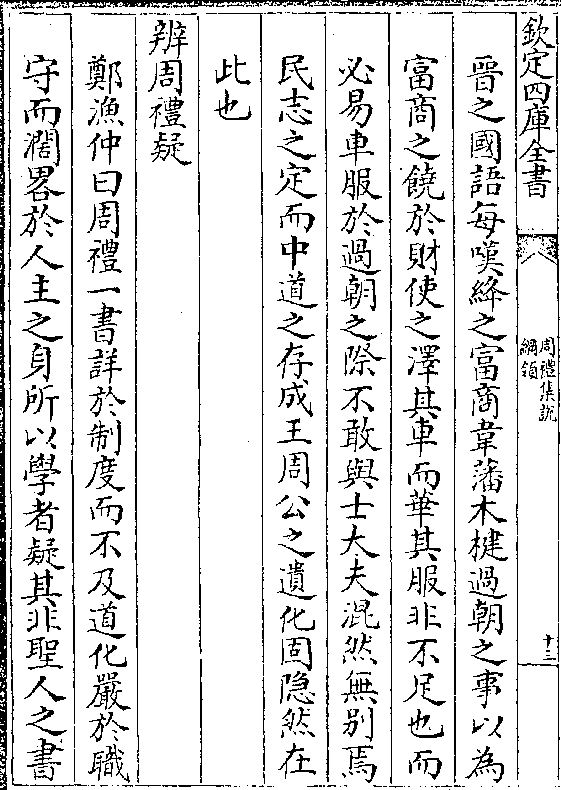 欽定四庫全書
周禮集説
綱領
十三
晉之國語每嘆絳之富商韋藩木楗過朝之事以為
富商之饒於財使之澤其車而華其服非不足也而
必易車服於過朝之際不敢與士大夫混然無别焉
民志之定而中道之存成王周公之遺化固隠然在
此也
辨周禮疑
鄭漁仲曰周禮一書詳於制度而不及道化嚴於職
守而濶畧於人主之身所以學者疑其非聖人之書